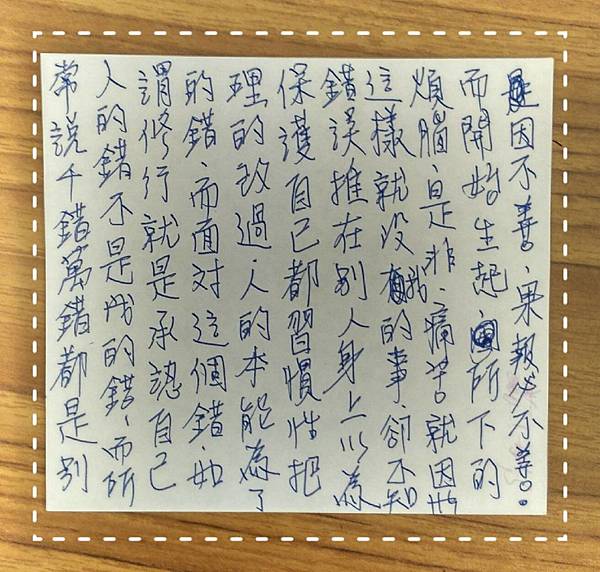 常說千錯萬錯都是別
人的錯不是我的錯、而所
謂修行就是承認自己
的錯、而面对這個錯、如
理的改過、人的本能為了
保護自己都習慣性把
錯誤推在別人身上以為
這樣就没我的事、卻不知
煩腦、是非、痛苦就因此
而開始生起、所下的
因不善、果報必不善。